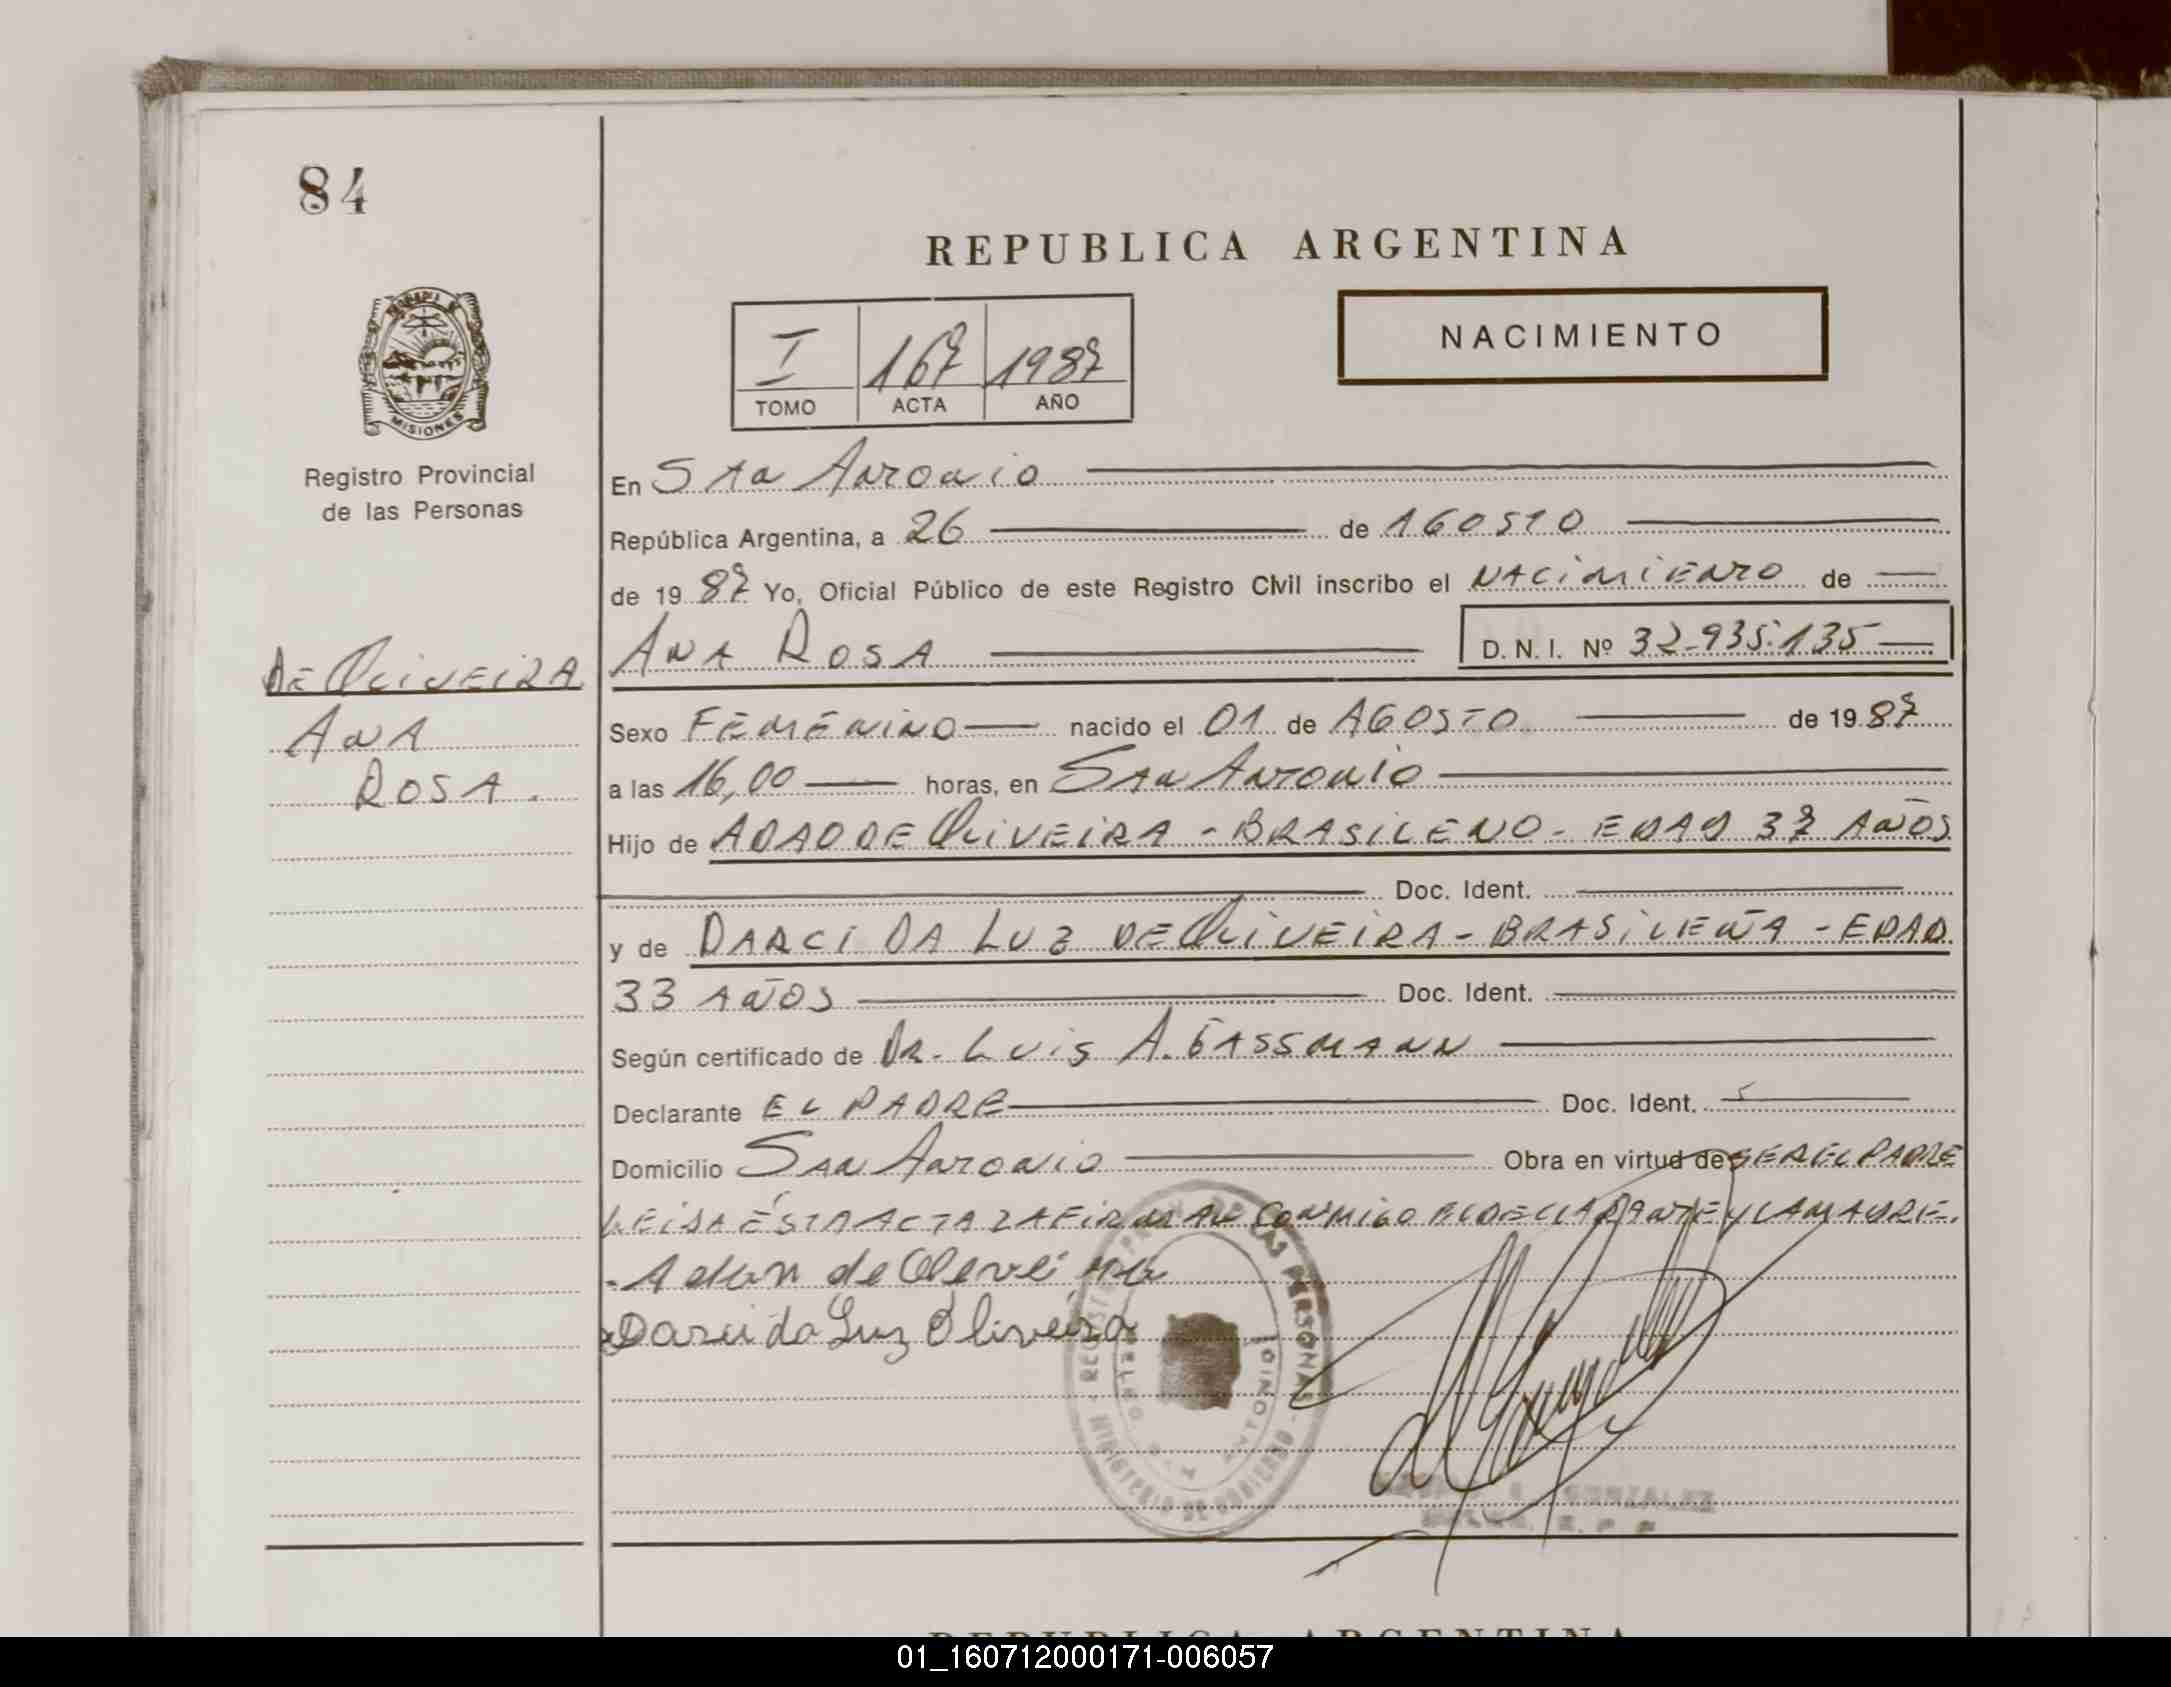 84
REPUBLICA ARGENTINA
NACIMIENTO
I 167 1987
TOMO ACTA AÑO
MISIONES
Registro Provincial
de las Personas
DE OLIVEIRA
ANA
ROSA.
En SAN ANTONIO
República Argentina, a 26 de AGOSTO
de 19 87 Yo, Oficial Público de este Registro Civil inscribo el NACIMIENTO de
ANA ROSA D. N. I. Nº 32-935.135
Sexo FEMENINO nacido el 01 de AGOSTO de 19 87
a las 16,00 horas, en SAN ANTONIO
Hijo de ADAO DE OLIVEIRA - BRASILENO - EDAD 37 AÑOS
Doc. Ident.
y de DARCI DA LUZ DE OLIVEIRA - BRASILEÑA - EDAD
33 AÑOS Doc. Ident.
Según certificado de DR. LUIS A. GASSMANN
Declarante EL PADRE Doc. Ident.
Domicilio SAN ANTONIO Obra en virtud de SER EL PADRE
LEIDA ÉSTA ACTA LA FIRMAN CONMIGO EL DECLARANTE Y LA MADRE.
Adan de
Darci da Luz Oliveira
REGISTRO PROV. DE LAS PERSONAS
MINISTERIO DE GOBIERNO
SAN ANTONIO
GONZALEZ
REPUBLICA ARGENTINA
01_160712000171-006057